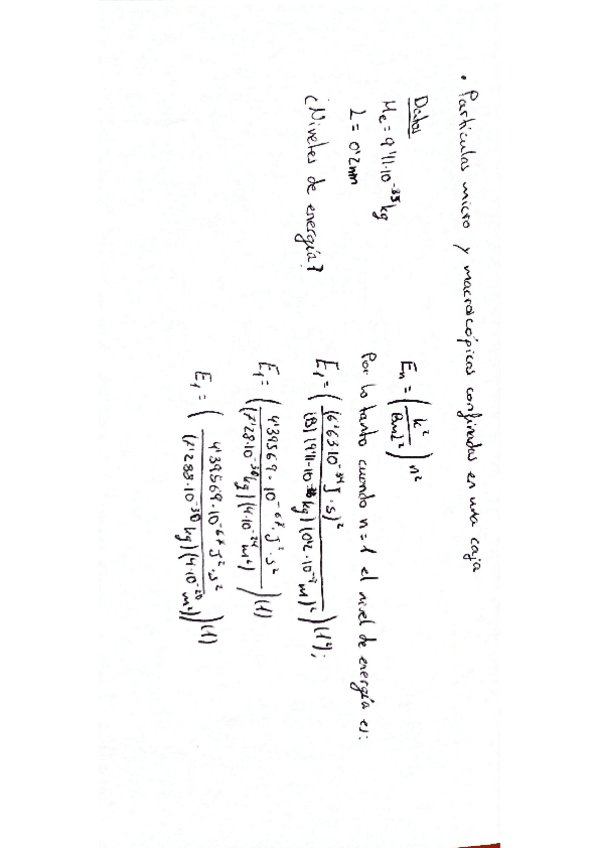 • Partículas micro y macroscópicas confinadas en una caja
Datos
Me = 9'11·10^-35 kg
L = 0'2nm
¿Niveles de energía?
En = (h^2 / 8mL^2) n^2
Por lo tanto cuando n=1 el nivel de energía es:
E1 = ((6'63·10^-34 J·s)^2 / (8)(9'11·10^-31 kg)(0'2·10^-9 m)^2)(1^2);
E1 = (4'39569·10^-67 J^2·s^2 / (7'28·10^-30 kg)(4·10^-24 m^2))(1)
E1 = (4'39569·10^-67 J^2·s^2 / (7'288·10^-30 kg)(4·10^-20 m^2))(1)